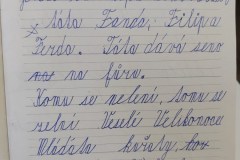 táta Fanda, Filip a
Ferda. Táta dává seno
na fůru.
Komu se nelení, tomu se
zelní Veselé Velikonoce
Mláďata kuřáty,